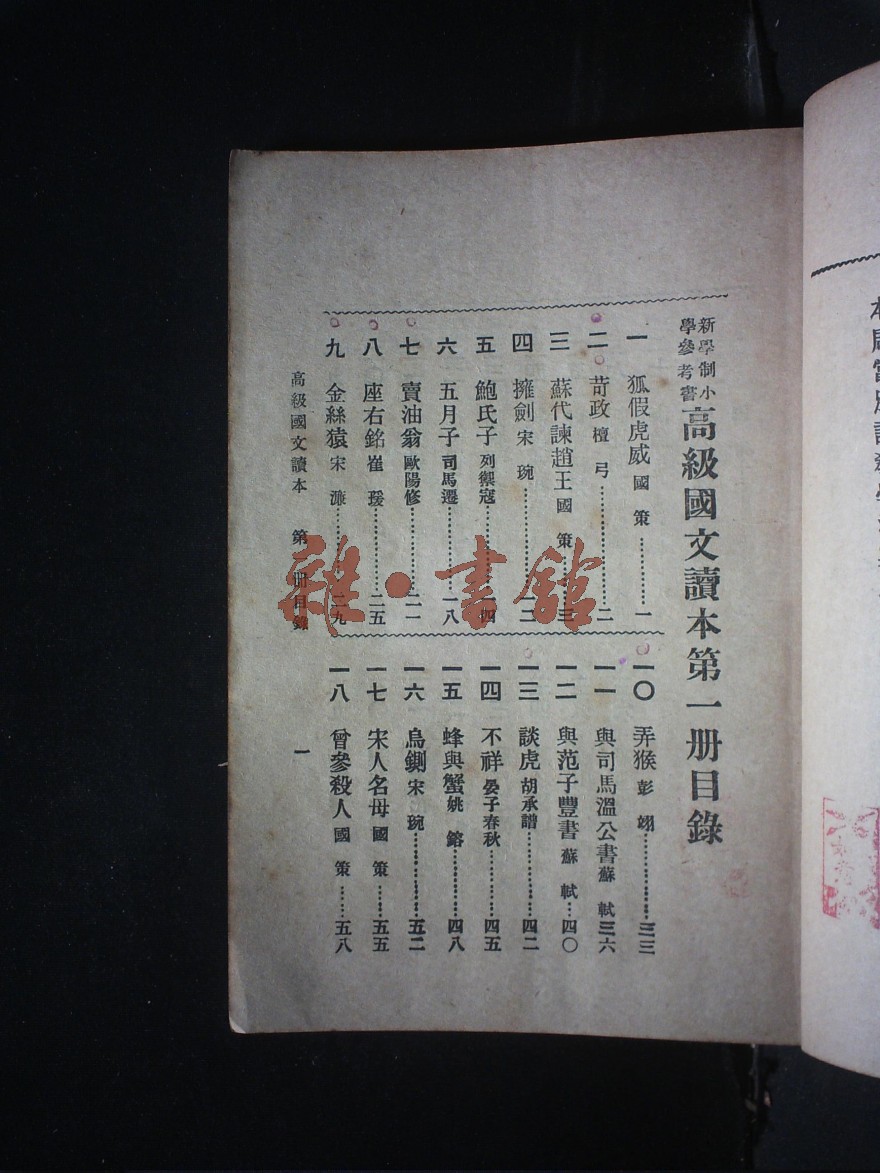 新學制小
學參考書
高級國文讀本第一册目錄
一 狐假虎威 國策……一
二 苛政 檀弓……二
三 蘇代諫趙王 國策……三
四 擁劍 宋琬……一二
五 鮑氏子 列禦寇……一四
六 五月子 司馬遷……一八
七 賣油翁 歐陽修……二一
八 座右銘 崔瑗……二五
九 金絲猿 宋濂……二九
一〇 弄猴 彭翊……三三
一一 與司馬溫公書 蘇軾 三六
一二 與范子豐書 蘇軾…四〇
一三 談虎 胡承譜……四二
一四 不祥 晏子春秋……四五
一五 蜂與蟹 姚鎔……四八
一六 烏鍘 宋琬……五二
一七 宋人名母 國策……五五
一八 曾參殺人 國策……五八
高級國文讀本 第一册目錄 一
雜·書館